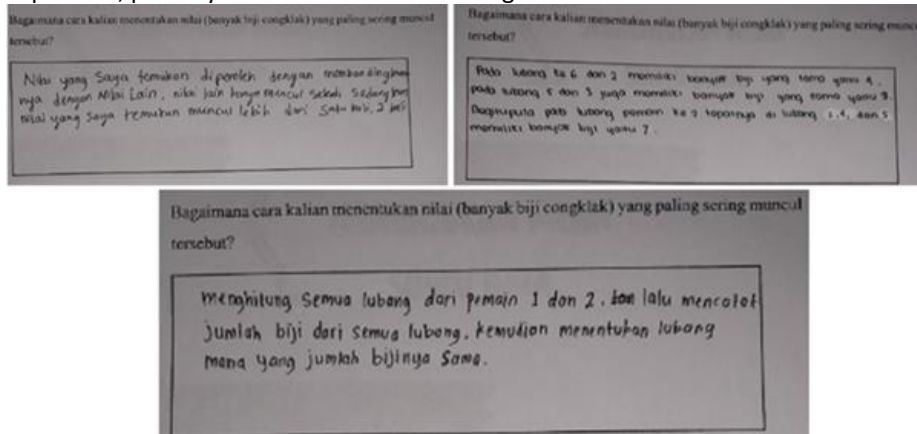 Bagaimana cara kalian menentukan nilai (banyak biji congklak) yang paling sering muncul
tersebut?
Nilai yang saya temukan diperoleh dengan membandingkan
nya dengan Nilai Lain, nilai lain hanya muncul sekali sedangkan
nilai yang saya temukan muncul lebih dari satu kali, 2 kali
Bagaimana cara kalian menentukan nilai (banyak biji congklak) yang paling sering muncul
tersebut?
Pada lubang ke 6 dan 2 memiliki banyak biji yang sama yaitu
pada lubang dan 3 juga memiliki banyak biji yang sama yaitu
pada lubang pemain ke 2 di lubang dan 5
memiliki banyak biji yaitu 7.
Bagaimana cara kalian menentukan nilai (banyak biji congklak) yang paling sering muncul
tersebut?
menghitung semua lubang dari pemain 1 dan 2. lalu mencatat
jumlah biji dari semua lubang. kemudian menentukan lubang
mana yang jumlah bijinya sama.